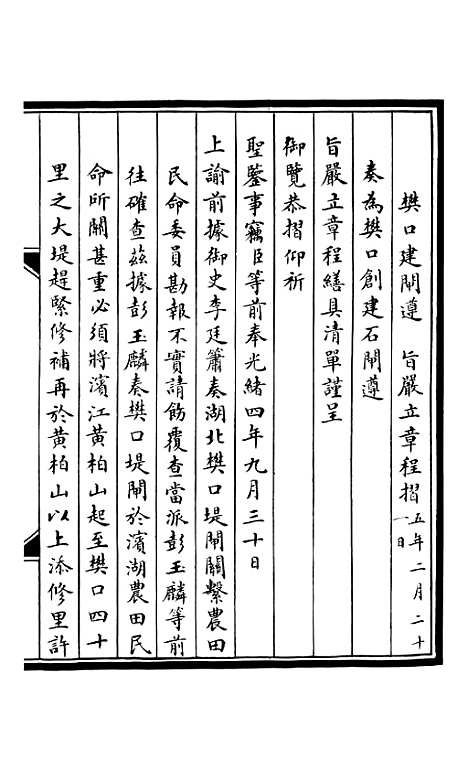 樊口建閘遵　旨嚴立章程摺五年二月二十一日
奏為樊口創建石閘遵
旨嚴立章程繕具清單謹呈
御覽恭摺仰祈
聖鑒事竊臣等前奉光緒四年九月三十日
上諭前據御史李廷簫奏湖北樊口堤閘關繫農田
民命委員勘報不實請飭覆查當派彭玉麟等前
往確查茲據彭玉麟奏樊口堤閘於濱湖農田民
命所關甚重必須將濱江黃柏山起至樊口四十
里之大堤趕緊修補再於黃柏山以上添修里許